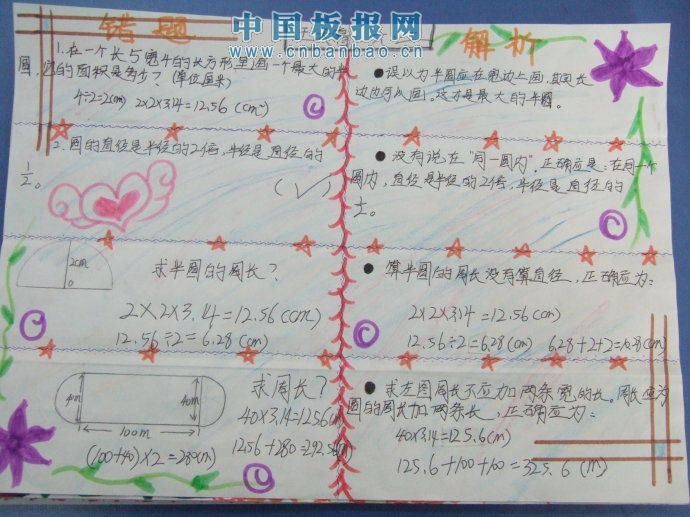 中国板报网
www.cnbanbao.cn
错题
1.在一个长5宽4的长方形里画一个最大的半
圆,它的面积是多少?(单位厘米)
4÷2=2(cm) 2×2×3.14=12.56(cm)
2.圆的直径是半径的2倍,半径是直径的
1/2。
(√)
2cm
0
求半圆的周长?
2×2×3.14=12.56(cm)
12.56÷2=6.28(cm)
求周长?
4m
40m
100m
40×3.14=1256(m)
(100+40)×2=280(m)
1256+280=292.5
解析
●误以为半圆应在宽边上画,其实长
边也可以画。这才是最大的半圆。
●没有说在“同一圆内”,正确应是:在同一个
圆内,直径是半径的2倍,半径是直径的
1/2。
●算半圆的周长没有算直径,正确应为:
2×2×3.14=12.56(cm)
12.56÷2=6.28(cm) 6.28+2+2=10.28(cm)
●求左图周长不应加两条宽的长。周长应为
圆的周长加两条长,正确应为:
40×3.14=125.6(m)
125.6+100+100=325.6(m)